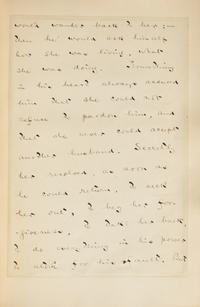 would wander back to her;—
then he would ask himself
how she was living, what
she was doing. Something
in his heart always assured
him that she could not
refuse to pardon him, and
that she never could accept
another husband. Secretly
he resolved, as soon as
he could return, to seek
her out, to beg her for-
-giveness, to take her back,
to do everything in his power
to atone for his fault. But